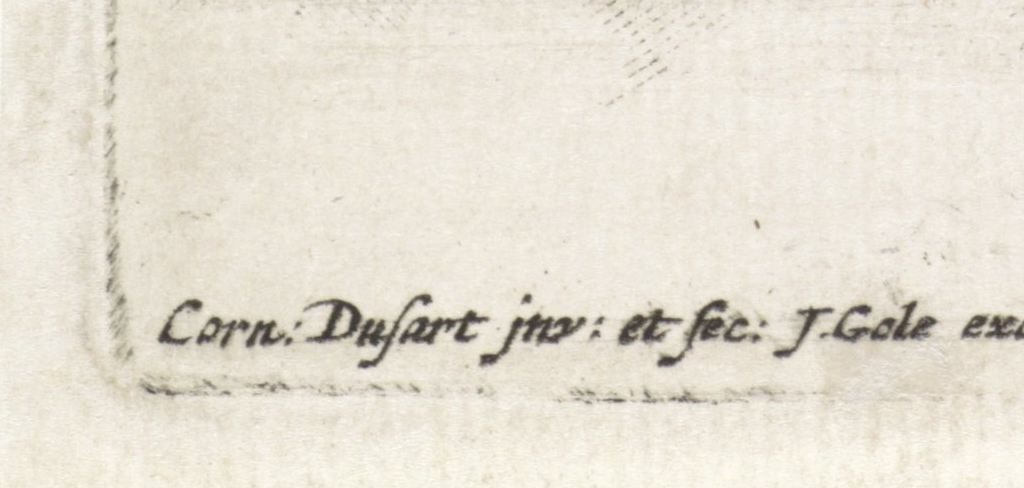 Corn: Duſart jnv: et fec: J. Gole exc